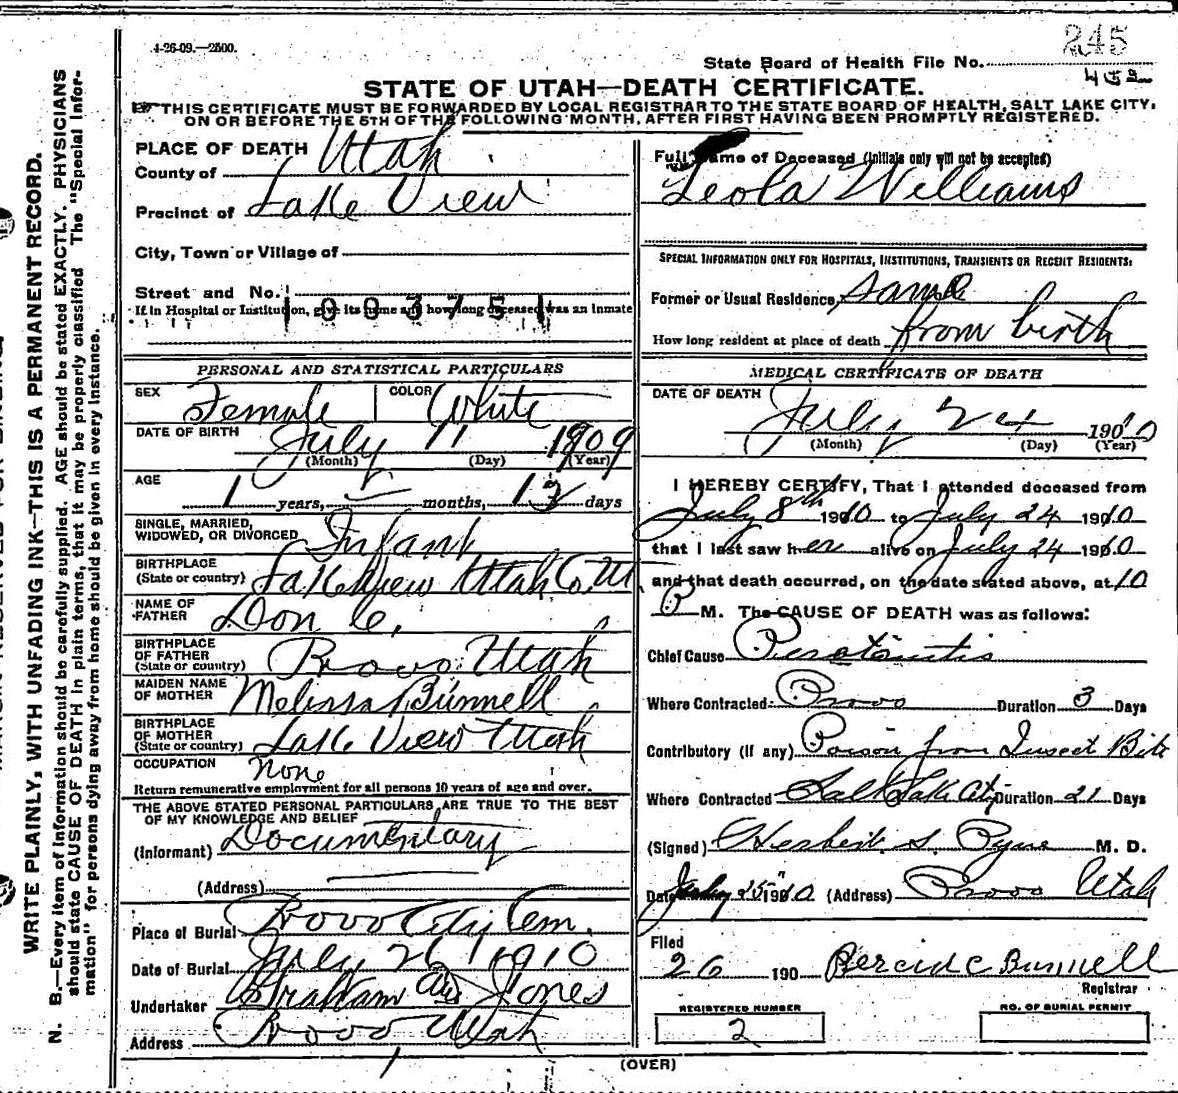 4-26-09.—2500.
245
State Board of Health File No.
452
STATE OF UTAH—DEATH CERTIFICATE.
THIS CERTIFICATE MUST BE FORWARDED BY LOCAL REGISTRAR TO THE STATE BOARD OF HEALTH, SALT LAKE CITY,
ON OR BEFORE THE 5TH OF THE FOLLOWING MONTH, AFTER FIRST HAVING BEEN PROMPTLY REGISTERED.
WRITE PLAINLY, WITH UNFADING INK—THIS IS A PERMANENT RECORD.
N. B.—Every item of information should be carefully supplied. AGE should be stated EXACTLY. PHYSICIANS
should state CAUSE OF DEATH in plain terms, that it may be properly classified. The "Special Infor-
mation" for persons dying away from home should be given in every instance.
PLACE OF DEATH
County of Utah
Precinct of Lake View
City, Town or Village of
Street and No.
If in Hospital or Institution, give its name and how long deceased was an inmate
1003751
PERSONAL AND STATISTICAL PARTICULARS
SEX Female COLOR White
DATE OF BIRTH July 11 1909
(Month) (Day) (Year)
AGE 1 years, months, 13 days
SINGLE, MARRIED,
WIDOWED, OR DIVORCED Infant
BIRTHPLACE
(State or country) Lake View Utah Co. Ut
NAME OF
FATHER Don C.
BIRTHPLACE
OF FATHER
(State or country) Provo Utah
MAIDEN NAME
OF MOTHER Melissa Bunnell
BIRTHPLACE
OF MOTHER
(State or country) Lake View Utah
OCCUPATION none
Return remunerative employment for all persons 10 years of age and over.
THE ABOVE STATED PERSONAL PARTICULARS ARE TRUE TO THE BEST
OF MY KNOWLEDGE AND BELIEF
(Informant) Documentary
(Address)
Place of Burial Provo City Cem.
Date of Burial July 26 1910
Undertaker Graham Jones
Address Provo, Utah
Full Name of Deceased (Initials only will not be accepted)
Leola Williams
SPECIAL INFORMATION ONLY FOR HOSPITALS, INSTITUTIONS, TRANSIENTS OR RECENT RESIDENTS:
Former or Usual Residence, Same
How long resident at place of death from birth
MEDICAL CERTIFICATE OF DEATH
DATE OF DEATH
July 24 1910
(Month) (Day) (Year)
I HEREBY CERTIFY, That I attended deceased from
July 8th 1910 to July 24 1910
that I last saw her alive on July 24 1910
and that death occurred, on the date stated above, at 10
P M. The CAUSE OF DEATH was as follows:
Chief Cause
Where Contracted Provo Duration 3 Days
Contributory (if any) Poison from Insect Bite
Where Contracted Salt Lake City Duration 21 Days
(Signed) Herbert S. Pyne M. D.
Date July 25 1910 (Address) Provo Utah
Filed
26 190 Bunnell
Registrar
REGISTERED NUMBER
2
NO. OF BURIAL PERMIT
(OVER)